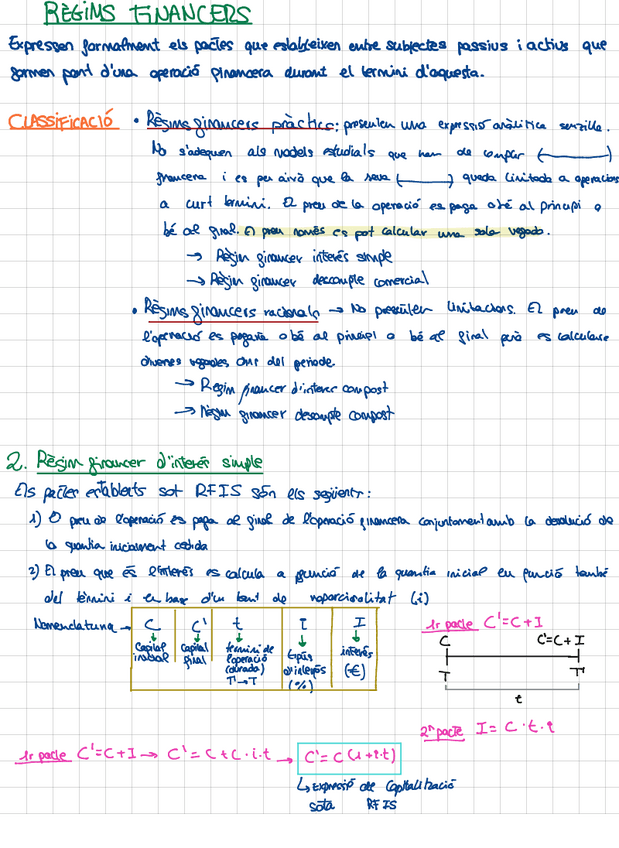 RÈGIMS FINANCERS
Expressen formalment els pactes que estableixen entre subjectes passius i actius que
formen part d'una operació financera durant el termini d'aquesta.
CLASSIFICACIÓ • Règims financers pràctics: presenten una expressió analítica senzilla.
No s'adequen als models estudials que han de complir (———)
financera i és per això que la seva (———) queda limitada a operacions
a curt termini. El preu de la operació es paga o bé al principi o
bé al final. El preu només es pot calcular una sola vegada.
→ Règim financer interès simple
→ Règim financer descompte comercial
• Règims financers racionals → No presenten limitacions. El preu de
l'operació es pagaria o bé al principi o bé al final però es calcularà
diverses vegades dins del període.
→ Règim financer d'interès compost
→ Règim financer descompte compost
2. Règim financer d'interès simple
Els pactes establerts sot RFIS són els següents:
1) El preu de l'operació es paga al final de l'operació financera conjuntament amb la devolució de
la quantia inicialment cedida
2) El preu que és l'interès es calcula a funció de la quantia inicial en funció també
del termini i en base d'un tant de proporcionalitat (i)
Nomenclatura → C C' t I I
Capital inicial Capital final termini de l'operació (durada) T'-T tipus d'interès (%) interès (€)
1r pacte C'=C+I
C C'=C+I
T T'
t
2n pacte I = C · t · i
1r pacte C'=C+I → C'=C+C·i·t → C'=C(1+i·t)
↳ Expressió de Capitalització
sota RFIS